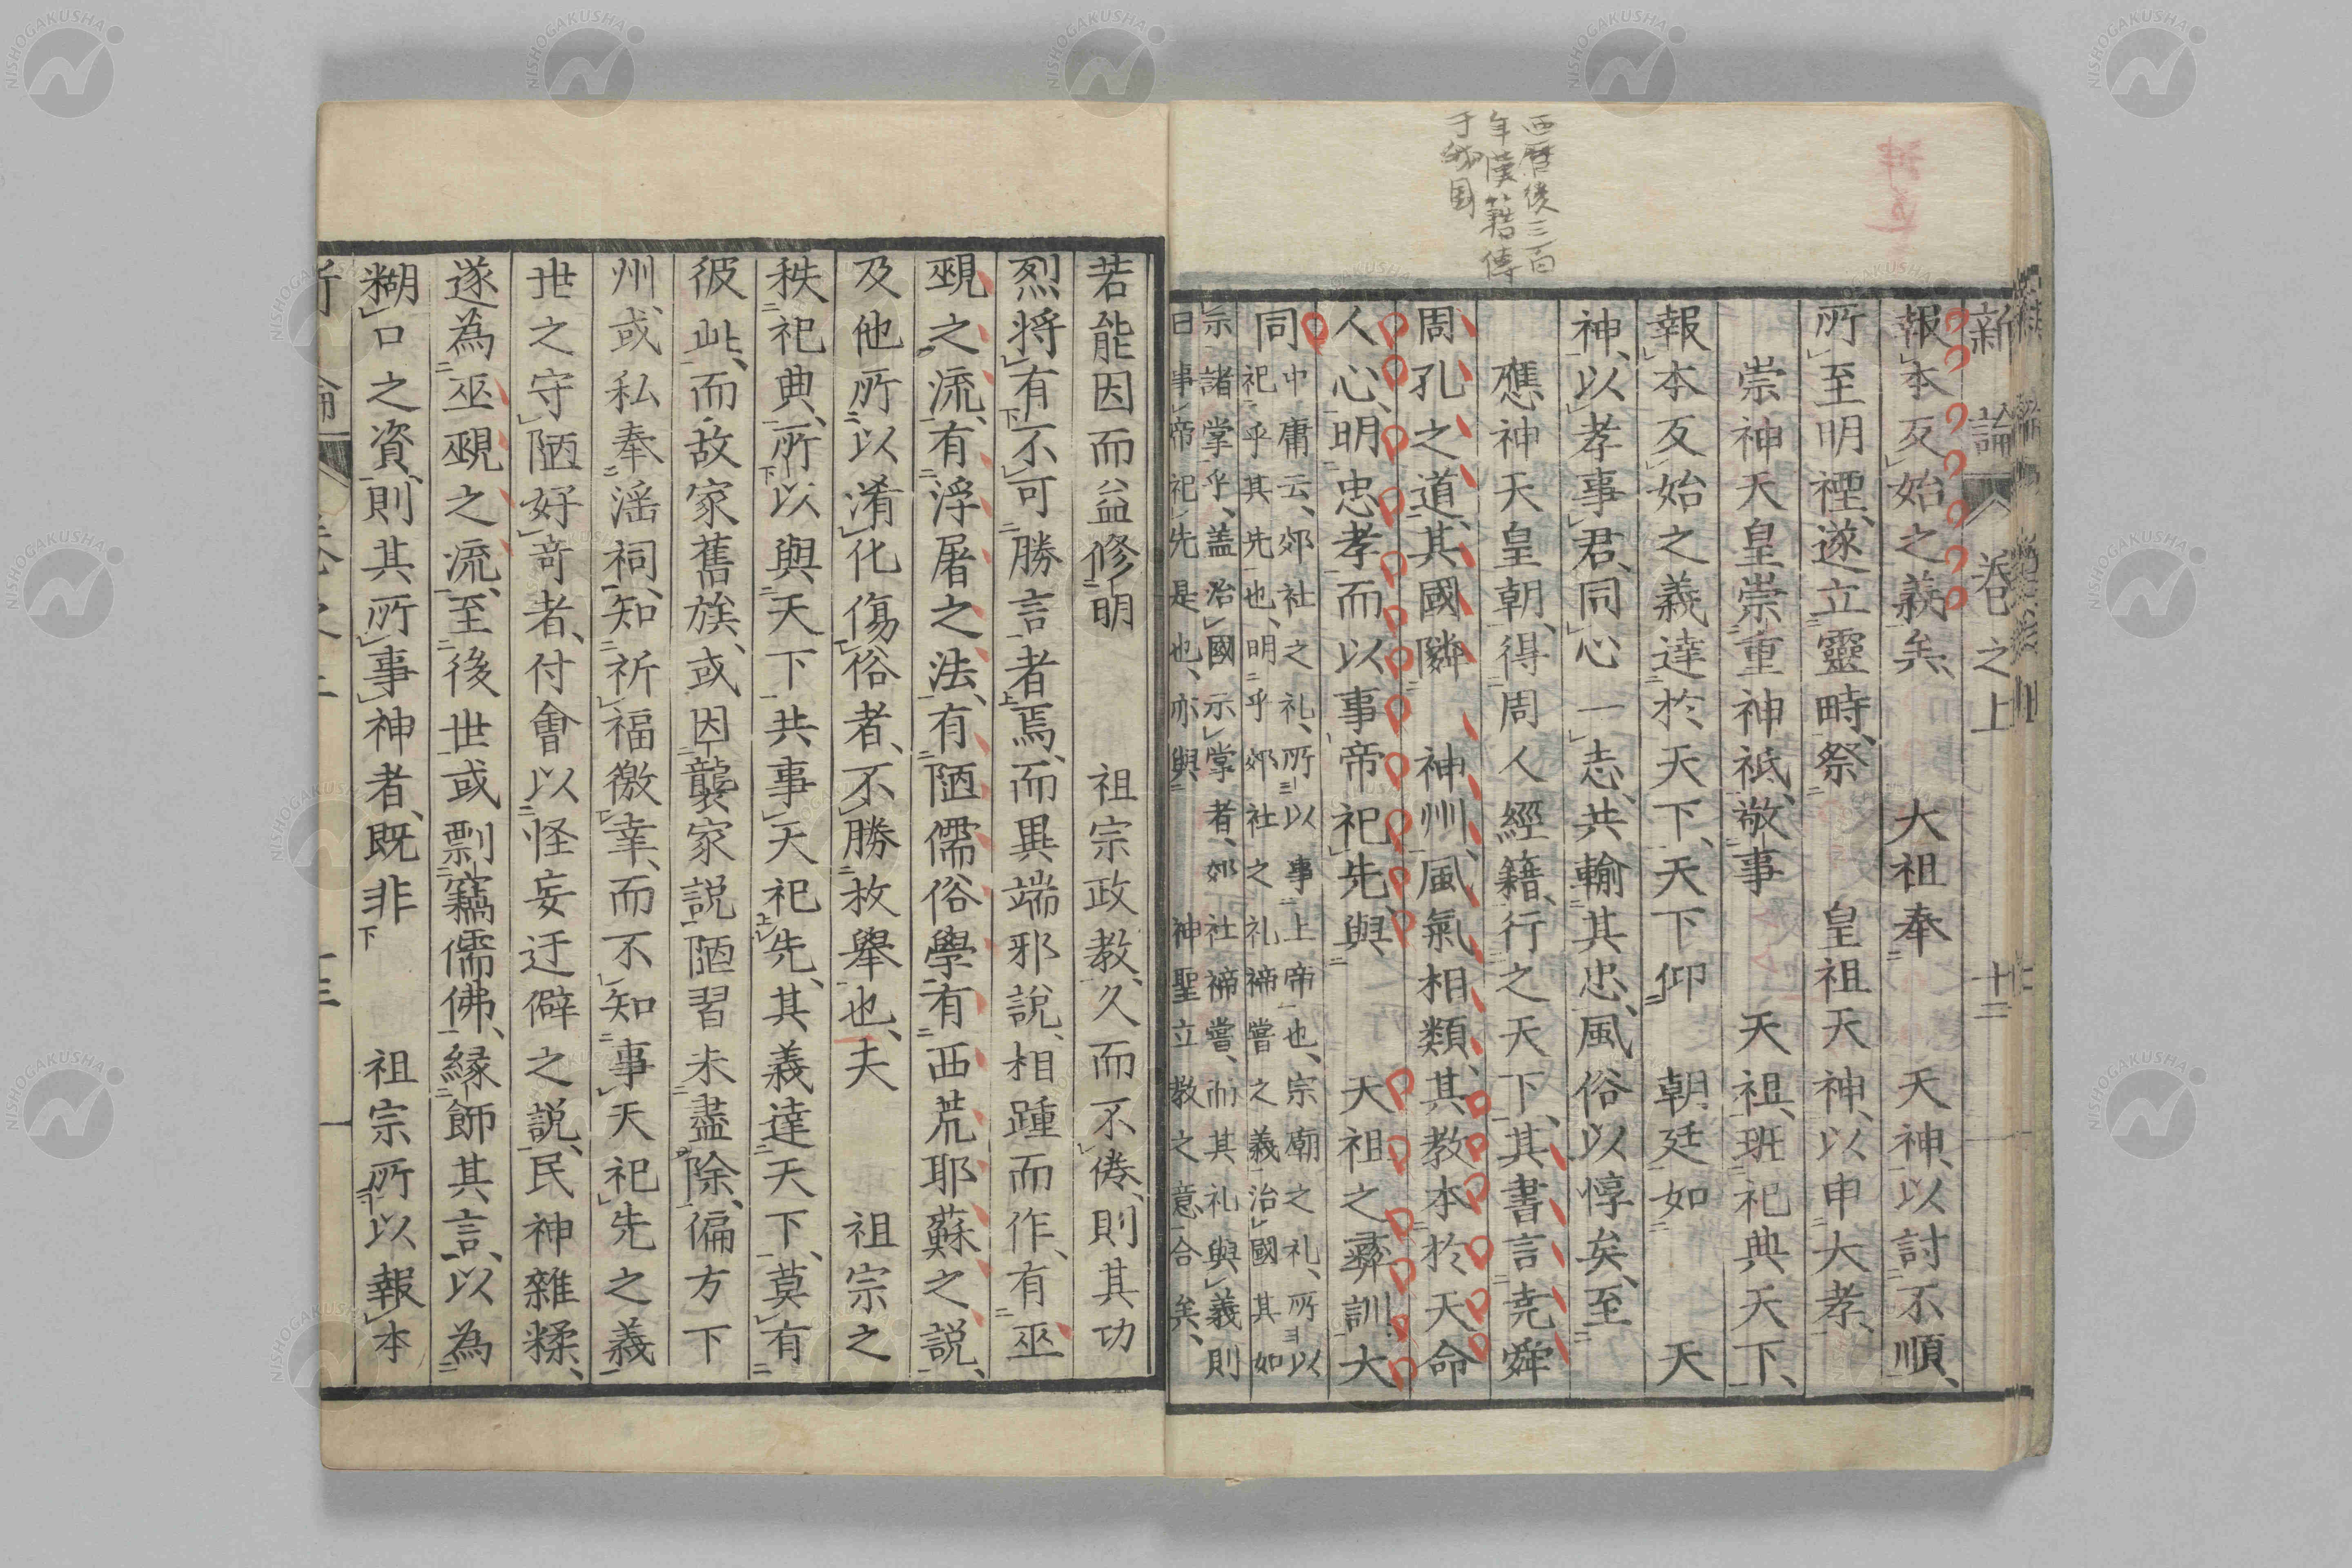 西曆後三百
年漢籍傳
于我国
新論 卷之上 十二
報本反始之義矣、大祖奉 天神、以討不順、
所至明禋、遂立靈畤、祭 皇祖天神、以申大孝、
崇神天皇崇重神祇、敬事 天祖、班祀典天下、
報本反始之義達於天下、天下仰 朝廷如 天
神、以孝事君、同心一志、共輸其忠、風俗以惇矣、至
應神天皇朝、得周人經籍、行之天下、其書言堯舜
周孔之道、其國隣 神州、風氣相類、其教本於天命
人心、明忠孝而以事帝祀先、與 天祖之彝訓大
同
中庸云、郊社之礼、所以事上帝也、宗廟之礼、所以
祀乎其先也、明乎郊社之礼禘嘗之義治國其如
示諸掌乎、蓋治國示掌者、郊社禘嘗、而其礼與義則
曰事帝祀先是也、亦與 神聖立教之意合矣、
若能因而益修明 祖宗政教、久而不倦、則其功
烈將有不可勝言者焉、而異端邪說、相踵而作、有巫
覡之流、有浮屠之法、有陋儒俗學、有西荒耶蘇之説、
及他所以淆化傷俗者、不勝枚舉也、夫 祖宗之
秩祀典、所以與天下共事天祀先、其義達天下、莫有
彼此、而故家舊族、或因襲家説陋習未盡除、偏方下
州、或私奉淫祠、知祈福徼幸、而不知事天祀先之義
世之守陋好奇者、付會以怪妄迂僻之説、民神雜糅、
遂為巫覡之流、至後世或剽竊儒佛、縁飾其言、以為
糊口之資、則其所事神者、既非 祖宗所以報本